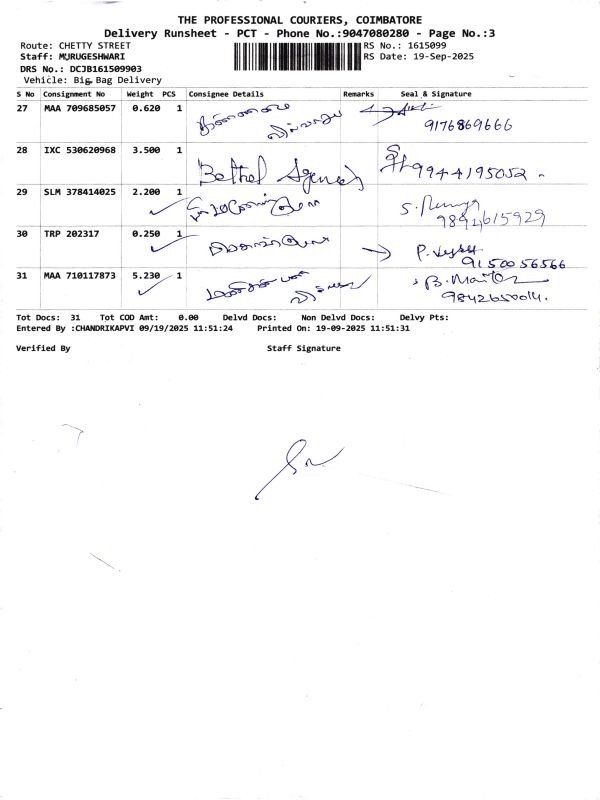 THE PROFESSIONAL COURIERS, COIMBATORE
Delivery Runsheet - PCT - Phone No.:9047080280 - Page No.:3
Route: CHETTY STREET RS No.: 1615099
Staff: MURUGESHWARI RS Date: 19-Sep-2025
DRS No.: DCJB161509903
Vehicle: Big Bag Delivery
S No Consignment No Weight PCS Consignee Details Remarks Seal & Signature
27 MAA 709685057 0.620 1
9176869666
28 IXC 530620968 3.500 1 Bethel Agencies 9944195052
29 SLM 378414025 2.200 1
30 TRP 202317 0.250 1
9150056566
31 MAA 710117873 5.230 1
Tot Docs: 31 Tot COD Amt: 0.00 Delvd Docs: Non Delvd Docs: Delvy Pts:
Entered By :CHANDRIKAPVI 09/19/2025 11:51:24 Printed On: 19-09-2025 11:51:31
Verified By Staff Signature